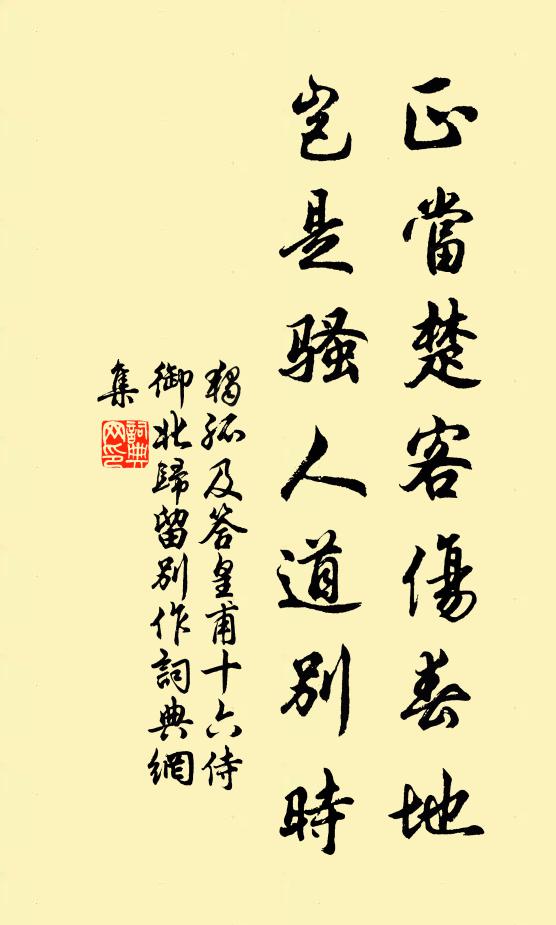 正當楚客傷春地
豈是騷人道別時
獨孤及答皇甫十六侍
御北歸留別作詞典網
集
詞典網印